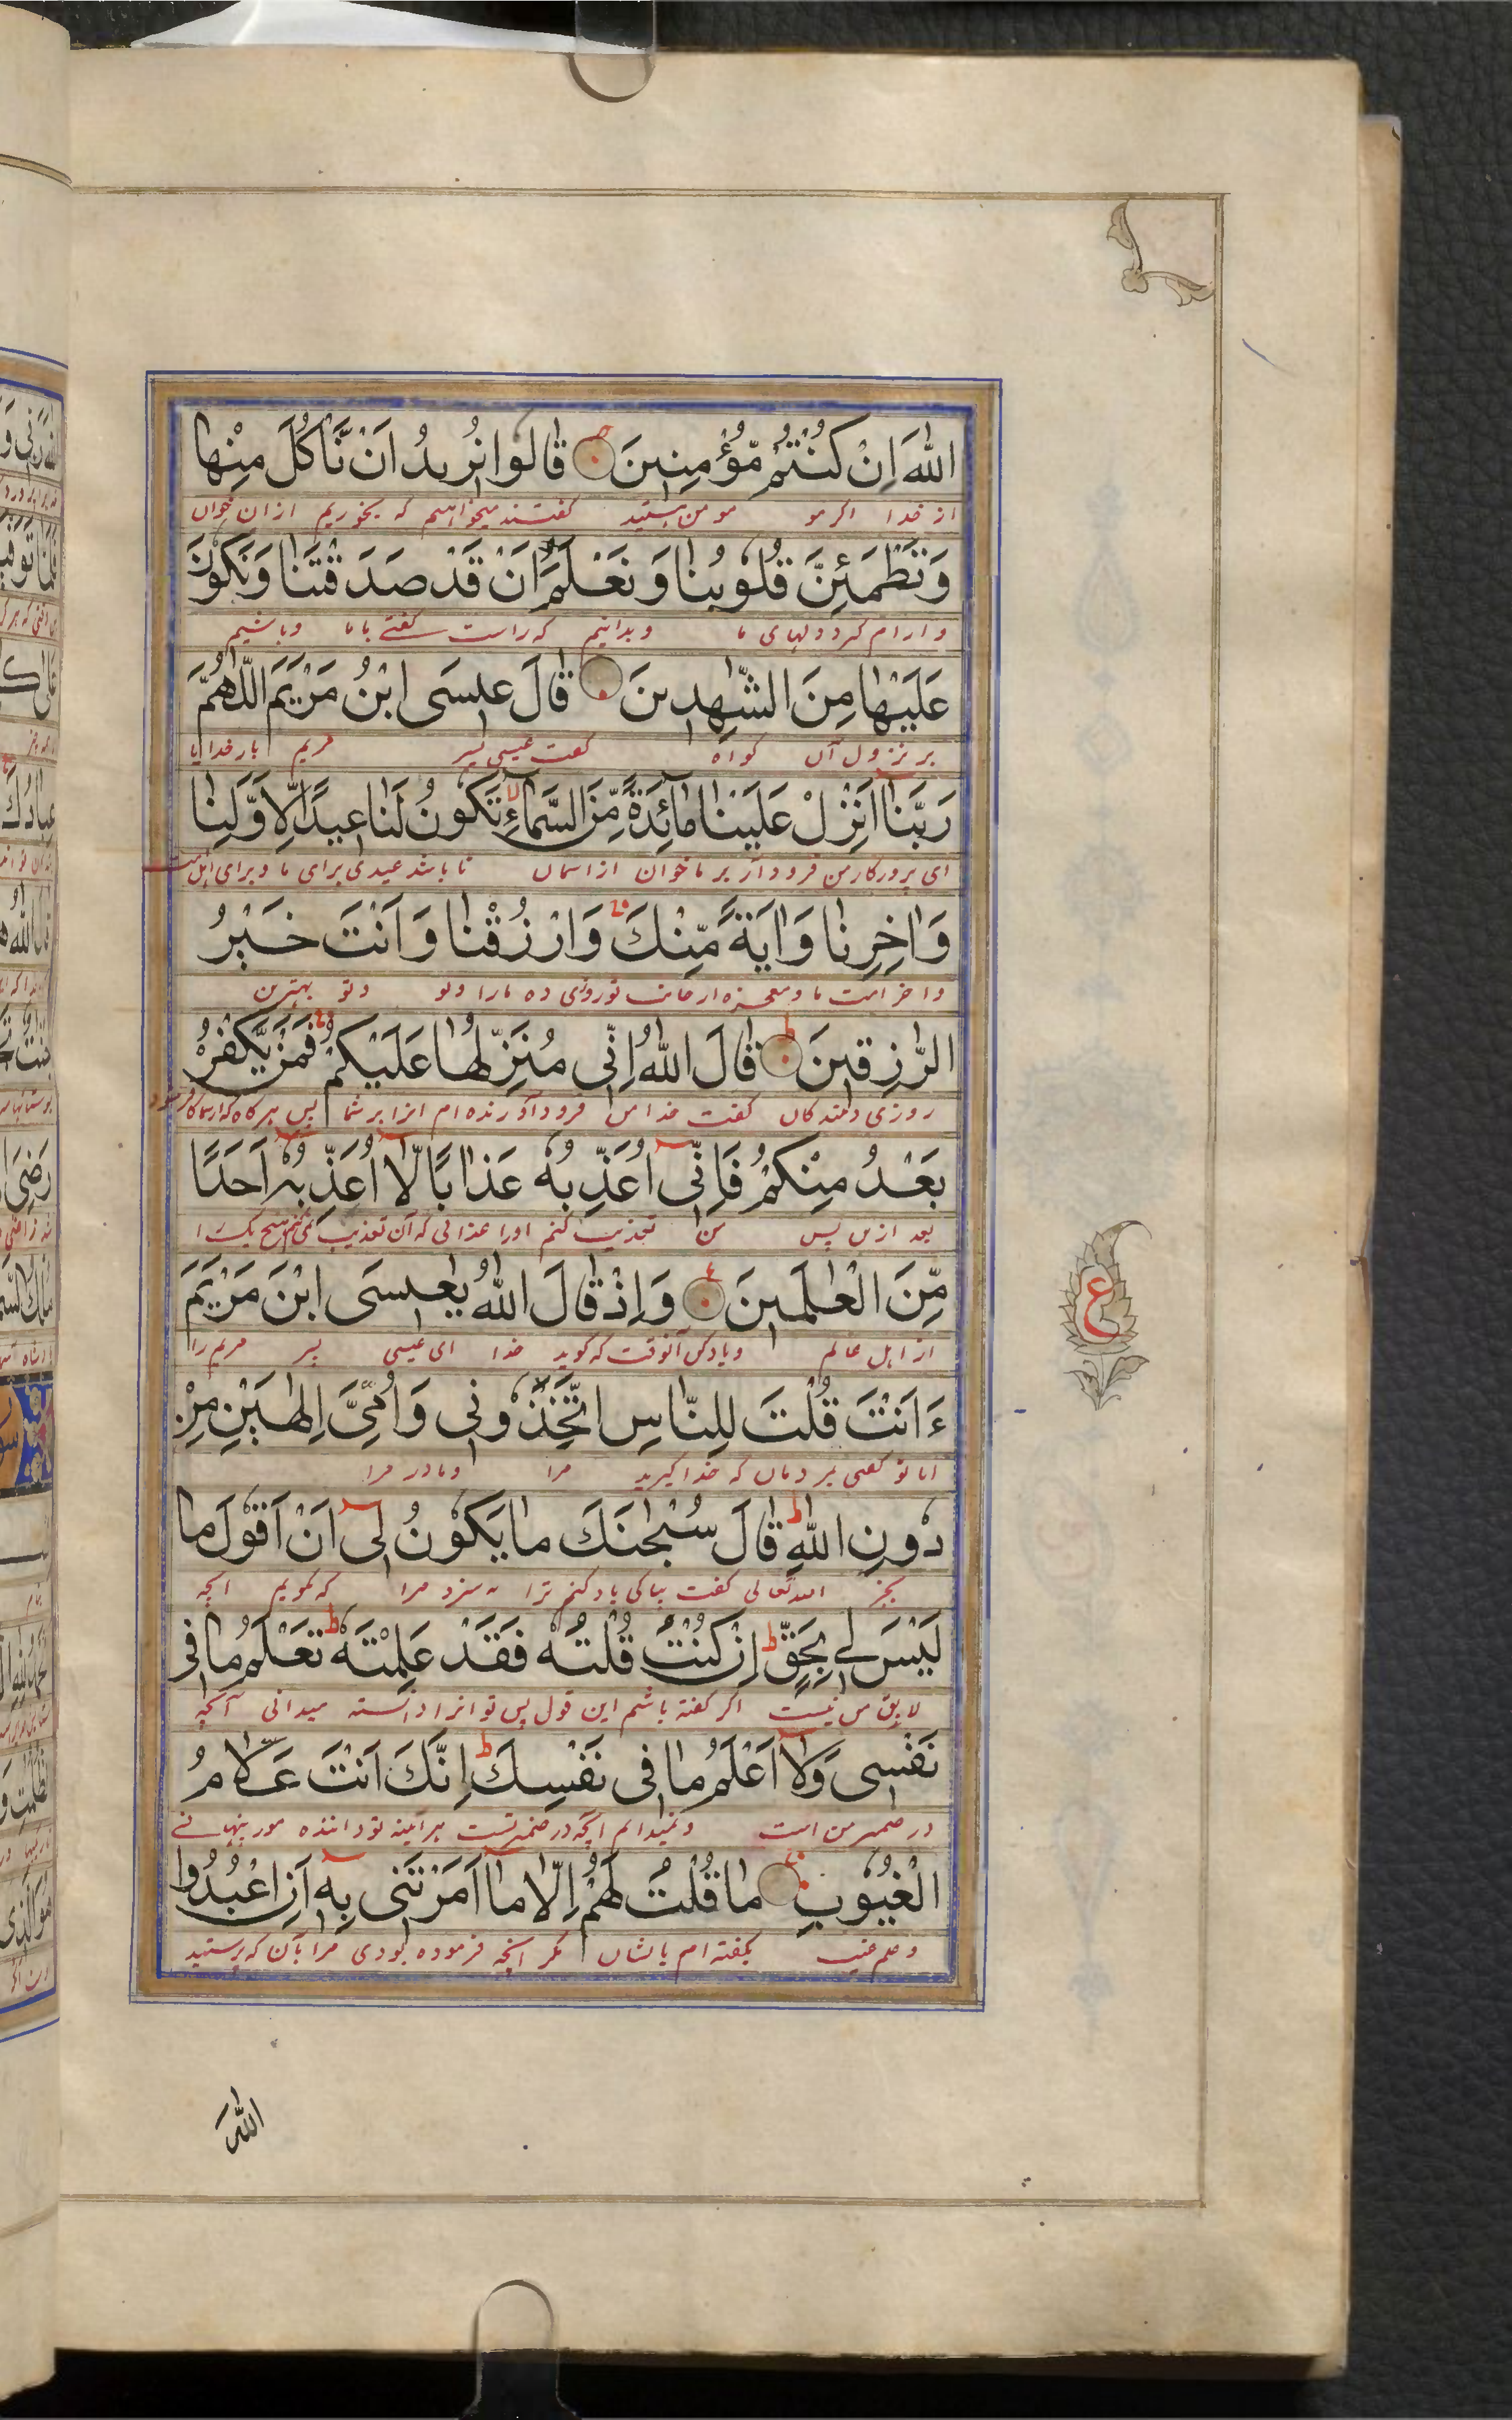 اللّٰهَ اِنْ كُنْتُمْ مُّؤْمِنِينَ قَالُوا نُرِيدُ اَنْ نَّاْكُلَ مِنْهَا
از خدا اگر مومن هستید گفتند میخواهیم که بخوریم ازان خوان
وَتَطْمَئِنَّ قُلُوبُنَا وَنَعْلَمَ اَنْ قَدْ صَدَقْتَنَا وَنَكُونَ
وارام گیرد دلهای ما و بدانیم که راست گفتی باما وباشیم
عَلَيْهَا مِنَ الشّٰهِدِينَ قَالَ عِيسَى ابْنُ مَرْيَمَ اللّٰهُمَّ
بر نزول آن گواه گفت عیسی پسر مریم بارخدایا
رَبَّنَا اَنْزِلْ عَلَيْنَا مَائِدَةً مِّنَ السَّمَاءِ تَكُونُ لَنَا عِيدًا لِاَوَّلِنَا
ای پروردگار من فرودآر بر ما خوان از اسمان تا باشد عیدی برای ما و برای اهل
وَاٰخِرِنَا وَاٰيَةً مِّنْكَ وَارْزُقْنَا وَاَنْتَ خَيْرُ
واخر امت ما و معجزه از جانب تو روزی ده مارا وتو بهترین
الرّٰزِقِينَ قَالَ اللّٰهُ اِنِّي مُنَزِّلُهَا عَلَيْكُمْ فَمَنْ يَّكْفُرْ
روزی دهندگان گفت خدا من فرود آورنده ام انرا بر شما پس هرگاه که از شما کافر شود
بَعْدُ مِنْكُمْ فَاِنِّي اُعَذِّبُهُ عَذَابًا لَّا اُعَذِّبُهُ اَحَدًا
بعد ازین پس من تعذیب کنم اورا عذابی که آن تعذیب نمی کنم هیچ یک را
مِّنَ الْعٰلَمِينَ وَاِذْ قَالَ اللّٰهُ يٰعِيسَى ابْنَ مَرْيَمَ
از اهل عالم ویادکن آنوقت که گوید خدا ای عیسی پسر مریم را
ءَاَنْتَ قُلْتَ لِلنَّاسِ اتَّخِذُونِي وَاُمِّيَ اِلٰهَيْنِ مِنْ
ایا تو گفتی بمردمان که خدا گیرید مرا ومادر مرا
دُونِ اللّٰهِ قَالَ سُبْحٰنَكَ مَا يَكُونُ لِي اَنْ اَقُولَ مَا
بجز الله تعالی گفت بپاکی یاد کنم ترا نه سزد مرا که گویم انچه
لَيْسَ لِي بِحَقٍّ اِنْ كُنْتُ قُلْتُهُ فَقَدْ عَلِمْتَهُ تَعْلَمُ مَا فِي
لایق من نیست اگر گفته باشم این قول پس تو انرا دانسته میدانی آنچه
نَفْسِي وَلَا اَعْلَمُ مَا فِي نَفْسِكَ اِنَّكَ اَنْتَ عَلَّامُ
در ضمیر من است ونمیدانم آنچه در ضمیر تست هر آینه تو داننده
الْغُيُوبِ مَا قُلْتُ لَهُمْ اِلَّا مَا اَمَرْتَنِي بِهِ اَنِ اعْبُدُوا
نگفته ام باایشان مگر انچه فرموده بودی مرا بآن که پرستید
اللّٰهَ
ع